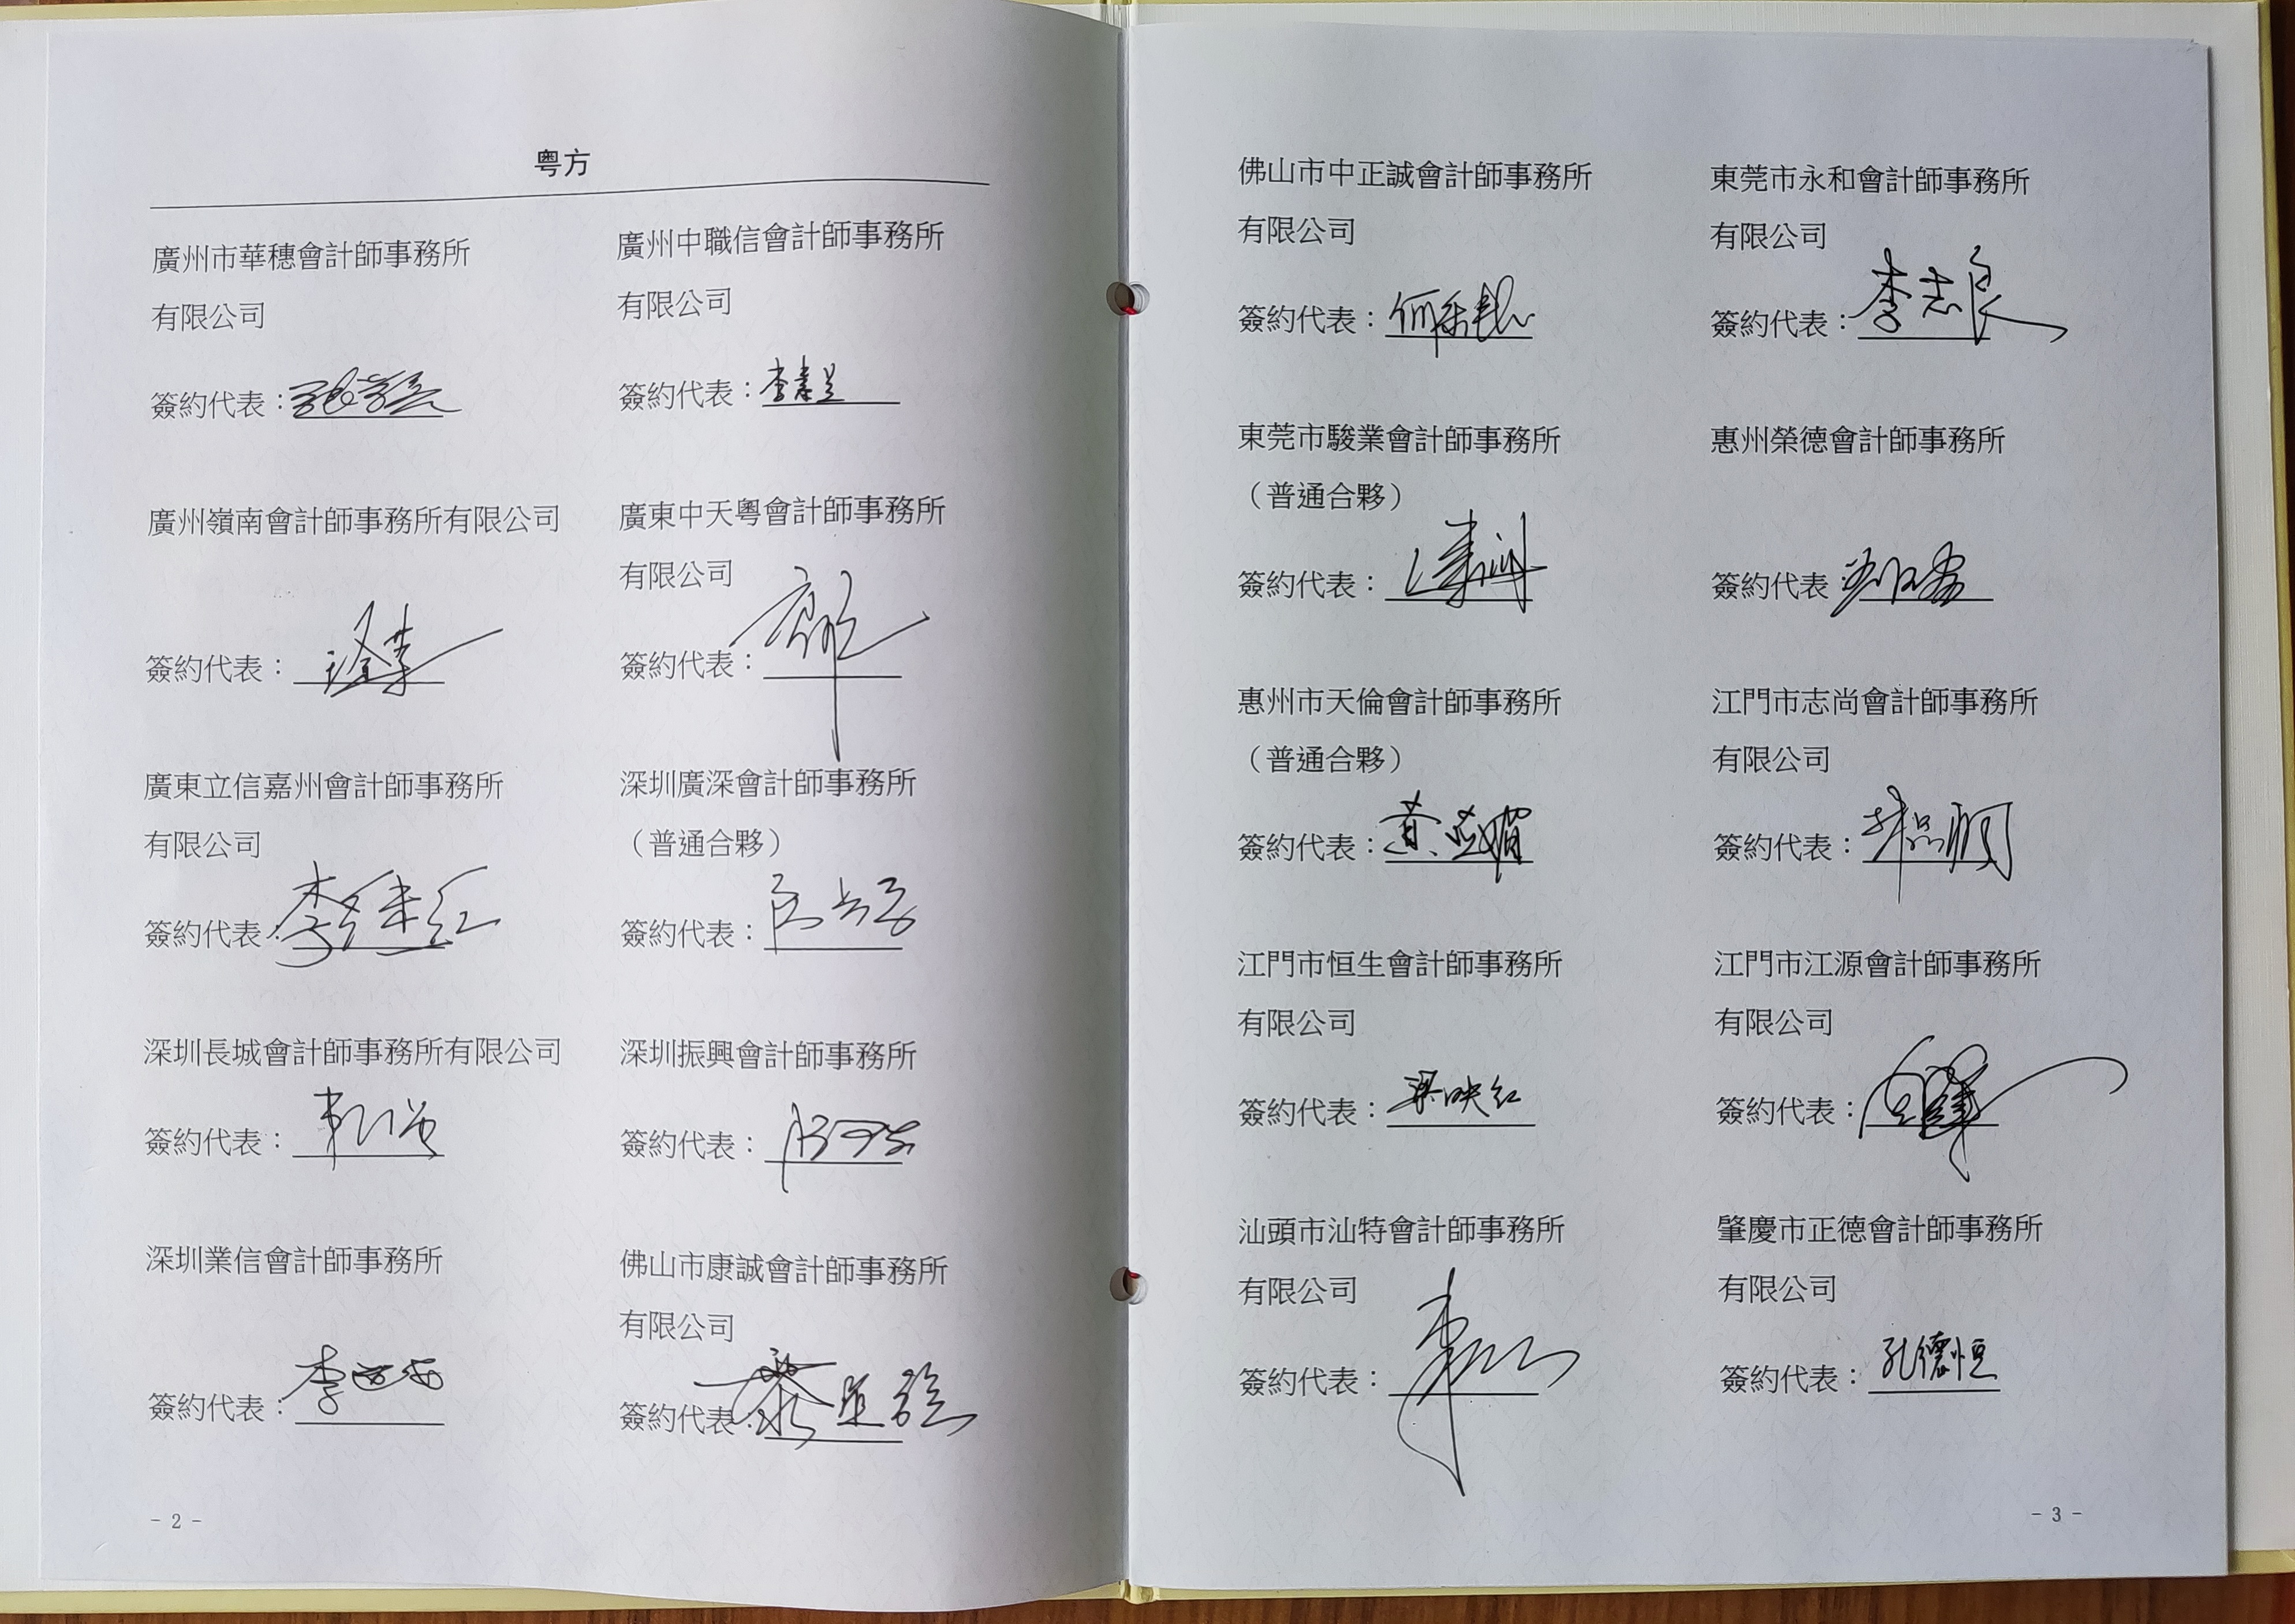 粤方
廣州市華穗會計師事務所
有限公司
簽約代表：
廣州中職信會計師事務所
有限公司
簽約代表：
廣州嶺南會計師事務所有限公司
簽約代表：
廣東中天粵會計師事務所
有限公司
簽約代表：
廣東立信嘉州會計師事務所
有限公司
簽約代表：
深圳廣深會計師事務所
（普通合夥）
簽約代表：
深圳長城會計師事務所有限公司
簽約代表：
深圳振興會計師事務所
簽約代表：
深圳業信會計師事務所
簽約代表：
佛山市康誠會計師事務所
有限公司
簽約代表：
- 2 -
佛山市中正誠會計師事務所
有限公司
簽約代表：
東莞市永和會計師事務所
有限公司
簽約代表：李志良
東莞市駿業會計師事務所
（普通合夥）
簽約代表：
惠州榮德會計師事務所
簽約代表
惠州市天倫會計師事務所
（普通合夥）
簽約代表：
江門市志尚會計師事務所
有限公司
簽約代表：
江門市恒生會計師事務所
有限公司
簽約代表：梁映红
江門市江源會計師事務所
有限公司
簽約代表：
汕頭市汕特會計師事務所
有限公司
簽約代表：
肇慶市正德會計師事務所
有限公司
簽約代表：孔德恒
- 3 -